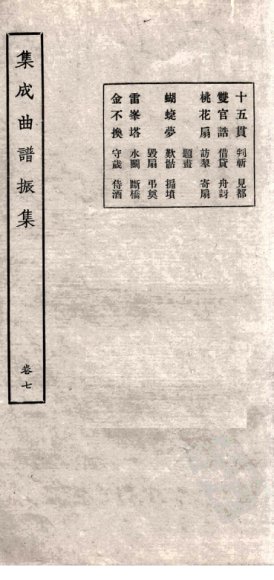 十五貫 判斬 見都
雙官誥 借貸 舟訝
桃花扇 訪翠 寄扇
題畫
蝴蜨夢 歎骷 搧墳
毀扇 弔奠
雷峯塔 水鬭 斷橋
金不換 守歲 侍酒
集成曲譜振集 卷七